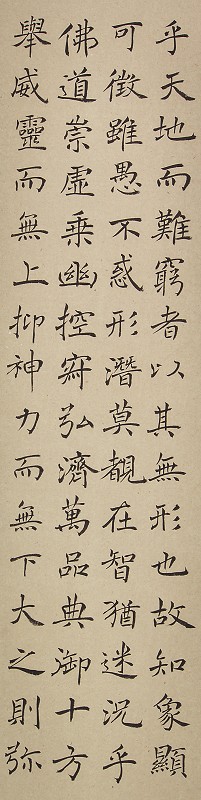 乎天地而難窮者以其無形也故知象顯
可徵雖愚不惑形潛莫覩在智猶迷況乎
佛道崇虛乘幽控寂弘濟萬品典御十方
舉威靈而無上抑神力而無下大之則弥